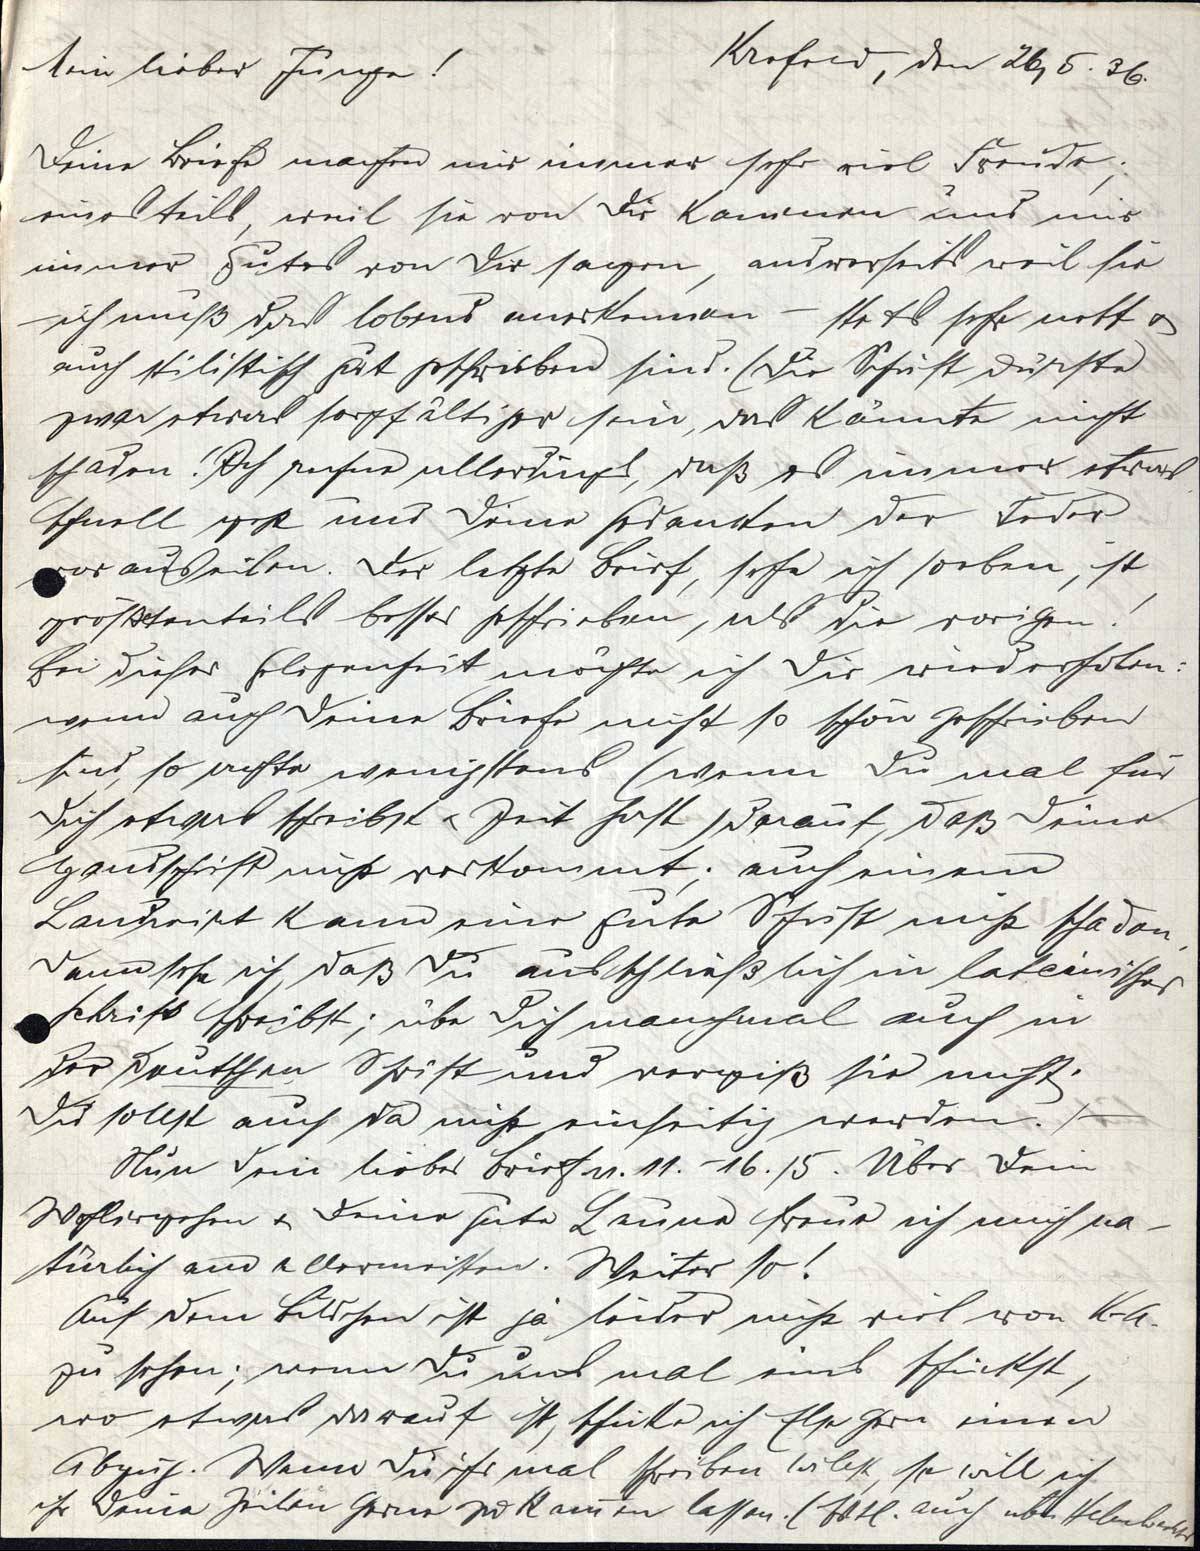 Mein lieber Junge! Krefeld, den 26.5.36.
Deine Briefe machen mir immer sehr viel Freude;
einesteils, weil sie von Dir kommen und mir
immer Gutes von Dir sagen, anderseits weil sie
– ich muß das lobend anerkennen – stets sehr nett &
auch stilistisch gut geschrieben sind. (Die Schrift dürfte
zwar etwas sorgfältiger sein, das könnte nicht
schaden! Ich nehme allerdings, daß es immer etwas
schnell geht und Deine Gedanken der Feder
vorauseilen. Der letzte Brief, sehe ich soeben, ist
größtenteils besser geschrieben, als die vorigen!
Bei dieser Gelegenheit möchte ich Dir wiederholen:
wenn auch Deine Briefe nicht so schön geschrieben
sind, so achte wenigstens (wenn Du mal für
Dich etwas schreibst & Zeit hast) darauf, daß Deine
Handschrift nicht verkommt; auch einem
Landwirt kann eine gute Schrift nicht schaden,
dann sehe ich, daß Du ausschließlich in lateinischer
Schrift schreibst; übe Dich manchmal auch in
der deutschen Schrift und vergiß sie nicht.
Du sollst auch da nicht einseitig werden. )–
Nun Dein lieber Brief v. 11.–16./5. Über Dein
Wohlergehen & Deine gute Laune freue ich mich na-
türlich am allermeisten. Weiter so!
Auf dem Bildchen ist ja leider nicht viel von K.A.
zu sehen; wenn Du uns mal eins schickst,
wo etwas darauf ist, schicke ich Else gern einen
Abzug. Wenn Du ihr mal schreiben willst, so will ich
ihr Deine Zeilen gerne zukommen lassen. ( auch über